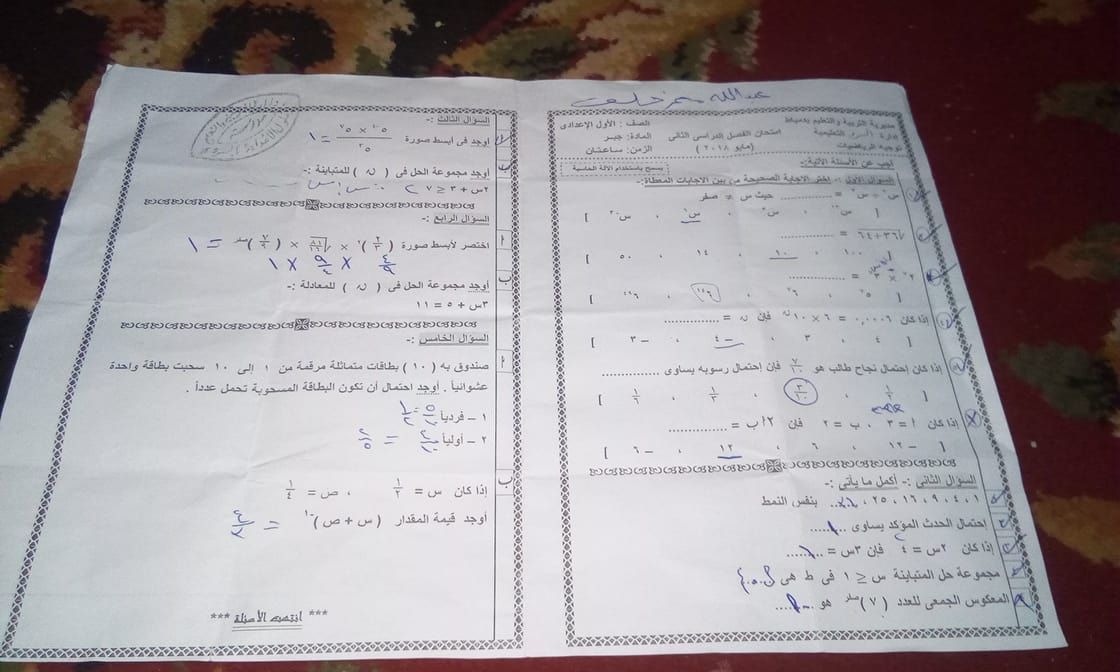 عبدالله سمير خلف
مديرية التربية والتعليم بدمياط
إدارة السرو التعليمية
توجيه الرياضيات
امتحان الفصل الدراسى الثانى
(مايو ٢٠١٨)
الصف : الأول الإعدادى
المادة: جبر
الزمن: ساعتان
أجب عن الأسئلة الآتية:-
يسمح باستخدام الآلة الحاسبة
السؤال الأول :- اختر الاجابة الصحيحة من بين الاجابات المعطاة:-
= ............ حيث س ≠ صفر
√٣٦+٦٤ = ............
[ ١٠٠ ، ١٠ ، ١٤ ، ٥٠ ]
إذا كان ٠,٠٠٠٦ = ٦ × ١٠ⁿ فإن ن = ............
[ ٤ ، ٣ ، – ٤ ، – ٣ ]
إذا كان إحتمال نجاح طالب هو ٧/١٠ فإن إحتمال رسوبه يساوى ............
[ ١/٢ ، ٣/١٠ ، ١/٣ ، ١/٦ ]
إذا كان أ = ٣ ، ب = ٢ فإن ٢أب = ............
[ – ١٢ ، ٦ ، ١٢ ، – ٦ ]
السؤال الثانى :- أكمل ما يأتى :-
١ ، ٤ ، ٩ ، ١٦ ، ٢٥ ، ..٣٦.. بنفس النمط
إحتمال الحدث المؤكد يساوى ..١..
إذا كان ٢س = ٤ فإن ٣س = ..٦..
مجموعة حل المتباينة س ≤ ١ فى ط هى
المعكوس الجمعى للعدد (٧)صفر هو ..-١..
السؤال الثالث :-
أوجد فى أبسط صورة = ١
أوجد مجموعة الحل فى ( ن ) للمتباينة :-
٢س + ٣ ≥ ٧
السؤال الرابع :-
اختصر لأبسط صورة
٤/٩ × ٩/٤ × ١
أوجد مجموعة الحل فى ( ن ) للمعادلة :-
٣س + ٥ = ١١
السؤال الخامس :-
صندوق به ( ١٠ ) بطاقات متماثلة مرقمة من ١ إلى ١٠ سحبت بطاقة واحدة
عشوائياً . أوجد احتمال أن تكون البطاقة المسحوبة تحمل عدداً .
١ – فردياً ٥/١٠ = ١/٢
٢ – أولياً ٤/١٠ = ٢/٥
إذا كان س = ١/٢ ، ص = ١/٤
أوجد قيمة المقدار ( س + ص )⁻¹ = ٤/٣
*** انتهت الأسئلة ***